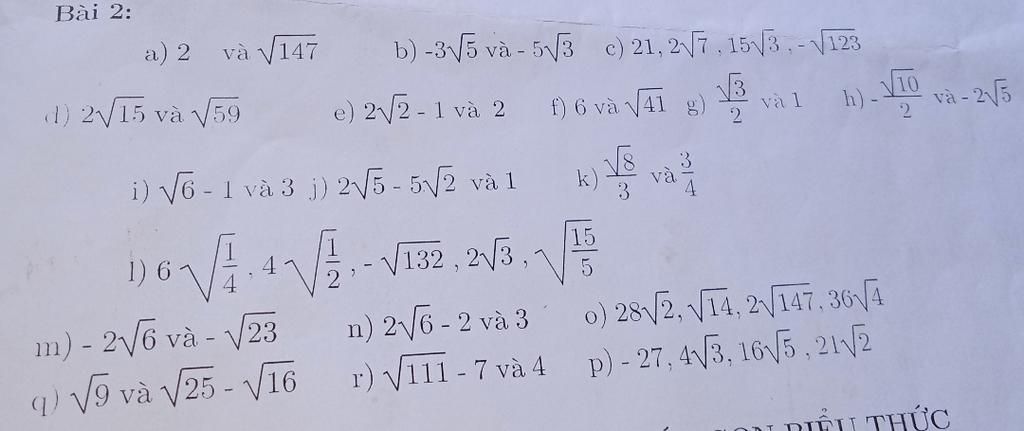 Bài 2:
a) 2 và √147 b) -3√5 và - 5√3 c) 21, 2√7 , 15√3 , - √123
d) 2√15 và √59 e) 2√2 - 1 và 2 f) 6 và √41 g) √3/2 và 1 h) - √10/2 và - 2√5
i) √6 - 1 và 3 j) 2√5 - 5√2 và 1 k) √8/3 và 3/4
l) 6√(1/4) , 4√(1/2) , - √132 , 2√3 , √(15/5)
m) - 2√6 và - √23 n) 2√6 - 2 và 3 o) 28√2, √14, 2√147, 36√4
q) √9 và √25 - √16 r) √111 - 7 và 4 p) - 27, 4√3, 16√5 , 21√2
BIỂU THỨC